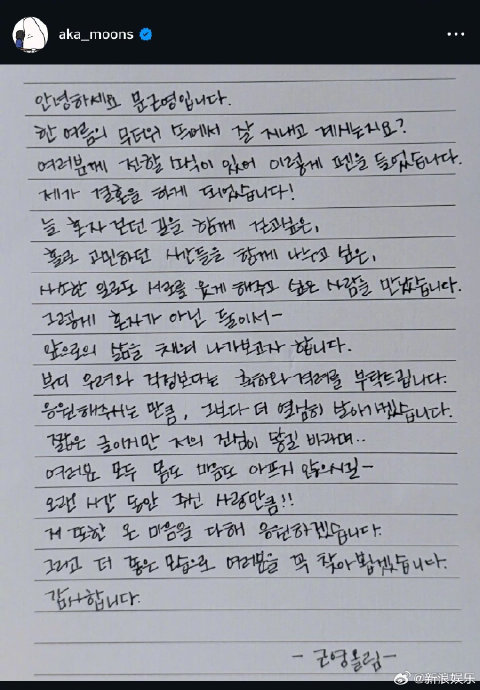 aka_moons
안녕하세요 문근영입니다.
한 여름의 무더위 속에서 잘 지내고 계시는지요?
여러분께 전할 소식이 있어 이렇게 펜을 들었습니다.
제가 결혼을 하게 되었습니다!
늘 혼자 걷던 길을 함께 걷고싶은,
홀로 고민하던 시간들을 함께 나누고 싶은,
사소한 일로도 서로를 웃게 해주고 싶은 사람을 만났습니다.
그렇게 혼자가 아닌 둘이서-
앞으로의 삶을 채워 나가보고자 합니다.
부디 우려와 걱정보다는 축하와 격려를 부탁드립니다.
응원해주시는 만큼, 그보다 더 열심히 살아가겠습니다.
짧은 글이지만 저의 진심이 닿길 바라며..
여러분 모두 몸도 마음도 아프지 않으시길-
오랜 시간 동안 주신 사랑만큼!!
저 또한 온 마음을 다해 응원하겠습니다.
그리고 더 좋은 모습으로 여러분을 꼭 찾아뵙겠습니다.
감사합니다.
- 근영올림 -
@新浪娱乐